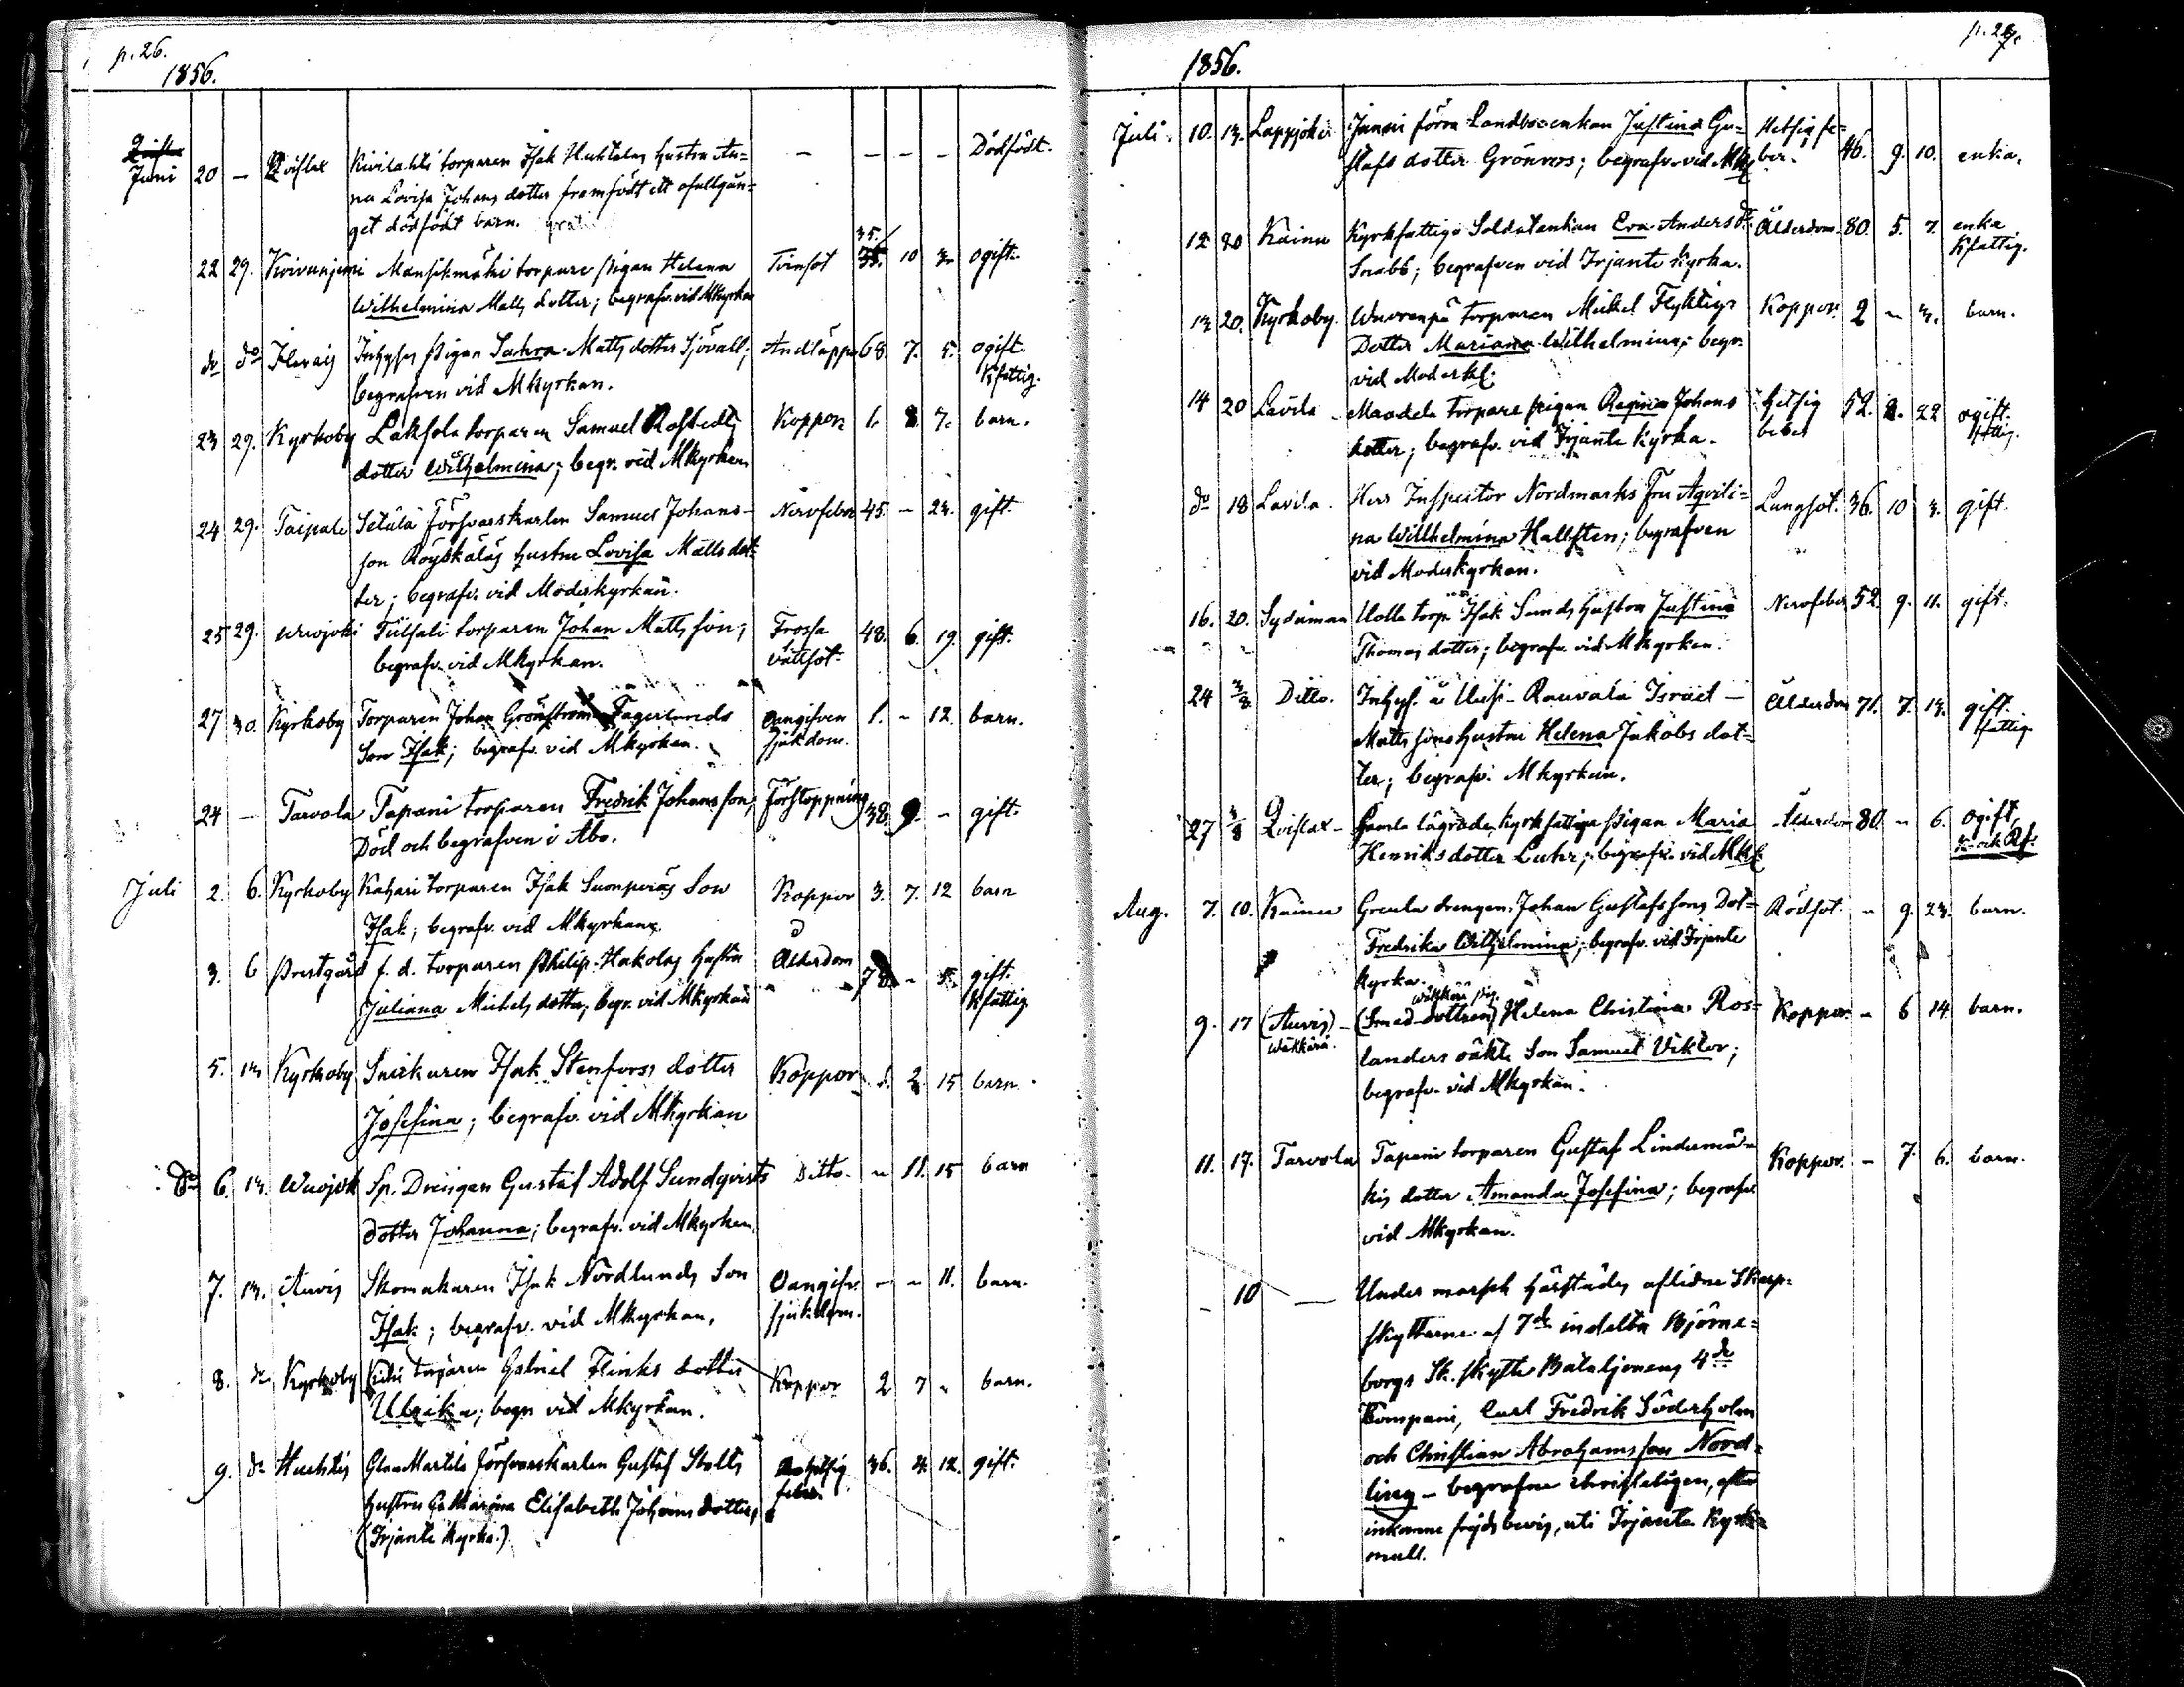 p. 26.
1856.
Juni 20 — Qviflax Kivilahti torparen Isak Huhtalas hustru An=
na Lovisa Johans dotter framfödt ett ofullgån=
get dödfödt barn. — — — — Dödfödt.
22 29. Koivuniemi Mansikmäki torpare pigan Helena
Wilhelmina Matts dotter; begrafv. vid Mkyrkan Tvinsot 35. 10 3. ogift.
do do Ilavais Inhyses pigan Sahra Matts dotter Sjövall;
begrafven vid Mkyrkan. Andtäppa 68. 7. 5. ogift. Kfattig.
23 29. Kyrkoby Laksola torparen Samuel Rostedts
dotter Wilhelmina; begr. vid Mkyrkan Koppor 1. 8 7. barn.
24 29. Taipale Setälä Försvarskarlen Samuel Johans-
son Röyskäläs hustru Lovisa Matts dot=
ter; begrafv. vid Moderkyrkan. Nervfeber 45. — 23. gift.
25 29. Wuojoki torparen Johan Matts son;
begrafv. vid Mkyrkan. Frossa vattsot. 48. 6. 19. gift.
27 30. Kyrkoby Torparen Johan Grönström Fagerlunds
Son Isak; begrafv. vid Mkyrkan. Oangifven sjukdom. 1. - 12. barn.
24 — Tarvola Tapani torparen Fredrik Johansson;
Död och begrafven i Åbo. Förstoppning 38. 9. - gift.
Juli 2. 6. Kyrkoby Kahari torparen Isak Suonperäs Son
Isak; begrafv. vid Mkyrkan. Koppor 3. 7. 12 barn
3. 6 Prestgård f. d. torparen Philip Hakolas hustru
Juliana Michels dotter; begr. vid Mkyrkan Ålderdom 78. - 5. gift. Kfattig.
5. 13. Kyrkoby Snickaren Isak Stenfors dotter
Josefina; begrafv. vid Mkyrkan Koppor 1. 2 15 barn.
do 6. 13. Wuojoki Sp. Drängen Gustaf Adolf Sundqvists
dotter Johanna; begrafv. vid Mkyrkan. Ditto. - 11. 15 barn
7. 13. Auvis Skomakaren Isak Nordlunds Son
Isak; begrafv. vid Mkyrkan, Oangifv. sjukdom. - - 11. barn.
8. do Kyrkoby torparen Gabriel Flinks dotter
Ulrika; begr. vid Mkyrkan. Koppor 2 7 - barn.
9. do Huhtis Martila Försvarskarlen Gustaf Stolts
hustru Catharina Elisabeth Johans dotter,
(Irjante Kyrka.) Hetsig feber. 36. 4. 12. gift.
p. 27.
1856.
Juli. 10. 13. Lappjoki Junni förra Landboenkan Justina Gu=
stafs dotter Grönroos; begrafv. vid Mk Hetsig fe=
ber. 46. 9. 10. enka.
12 20 Kainu Kyrkfattiga Soldatenkan Eva Anders dr
Snabb; begrafven vid Irjante Kyrka. Ålderdom. 80. 5. 7. enka Kfattig.
13 20. Kyrkoby. Wuorenpä torparen Mickel Flyktigs
Dotter Mariana Wilhelmina; begr.
vid Moderk. Koppor. 2 - 3. barn.
14 20 Lavila torpare pigan Regina Johans
dotter; begrafv. vid Irjante Kyrka. Hetsig feber 52. 2. 22 ogift. Kfattig.
do 18 Lavila. Herr Inspector Nordmarks Fru Aqvili=
na Willhelmina Hallsten; begrafven
vid Moderkyrkan. Lungsot. 36. 10 3. gift.
16. 20. Sydänmaa Uolla torp. Isak Sunds hustru Justina
Thomas dotter; begrafv. vid Mkyrkan. Nervfeber 52. 9. 11. gift.
24 3/8 Ditto. Inhys. å Uusi-Rauvala Israel
Matts sons hustru Helena Jakobs dot=
ter; begrafv. Mkyrkan. Ålderdom 71. 7. 13. gift. Kfattig
27 3/8 Qviflax - Gamla kyrkfattiga pigan Maria
Henriks dotter Luhr; begrafv. vid Mk Ålderdom 80. - 6. ogift,
Aug. 7. 10. Kainu Greula drengen Johan Gustafssons Dot=
Fredrika Wilhelmina; begrafv. vid Irjante
Kyrka. Rödsot. - 9. 23. barn.
9. 17 (Auvis) Wäkkärä. (Smed dottren) Wäkkärä pig. Helena Christina Ros=
landers oäkta Son Samuel Viktor;
begrafv. vid Mkyrkan. Koppor. - 6 14. barn.
11. 17. Tarvola Tapani torparen Gustaf Lindemä=
kis dotter Amanda Josefina; begrafv.
vid Mkyrkan. Koppor. - 7. 6. barn.
- 10 — Under marsch härstädes aflidne Skarp=
skyttarne af 7de indelta Björne=
borgs Sk. skytte Bataljonens 4de
Kompani, Carl Fredrik Söderholm
och Christian Abrahamsson Nord=
ling - begrafne christeligen, efter
inkomne frejdsbevis, uti Irjante Kyrko
mull.